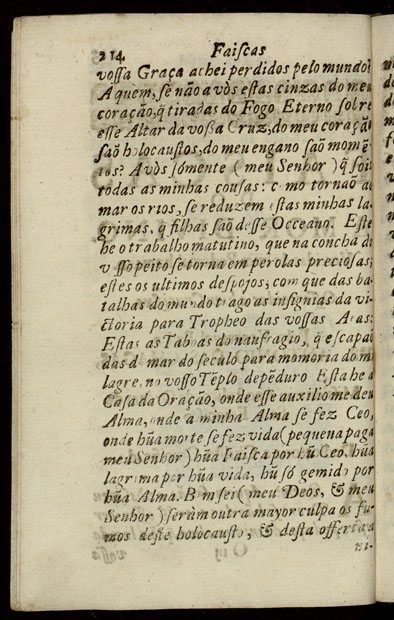 214. Faiscas
vossa Graça achei perdidos pelo mundo?
A quem, se não a vòs estas cinzas do meu
coração, q̃ tiradas do Fogo Eterno sobre
esse Altar da voßa Cruz, do meu coração
saõ holocaustos, do meu engano saõ momẽ
tos? A vòs sómente (meu Senhor) q̃ sois
todas as minhas cousas: como tornaõ ao
mar os rios, se reduzem estas minhas la-
grimas, q̃ filhas saõ desse Occeano. Este
he o trabalho matutino, que na concha do
vosso peito se torna em perolas preciosas;
estes os ultimos despojos, com que das ba-
talhas do mundo trago as insignias da vi-
ctoria para Tropheo das vossas Aras:
Estas as Taboas do naufragio, q̃ escapa
das do mar do seculo para momoria do mi
lagre, no vosso Tẽplo depẽduro Esta he a
Casa da Oração, onde esse auxilio me deu
Alma, onde a minha Alma se fez Ceo,
onde hũa morte se fez vida (pequena paga
meu Senhor) hũa Faisca por hũ Ceo, hũa
lagrima por hũa vida, hũ só gemido por
hũa Alma. Bem sei (meu Deos, & meu
Senhor) seràm outra mayor culpa os fu-
mos deste holocausto, & desta offerta a